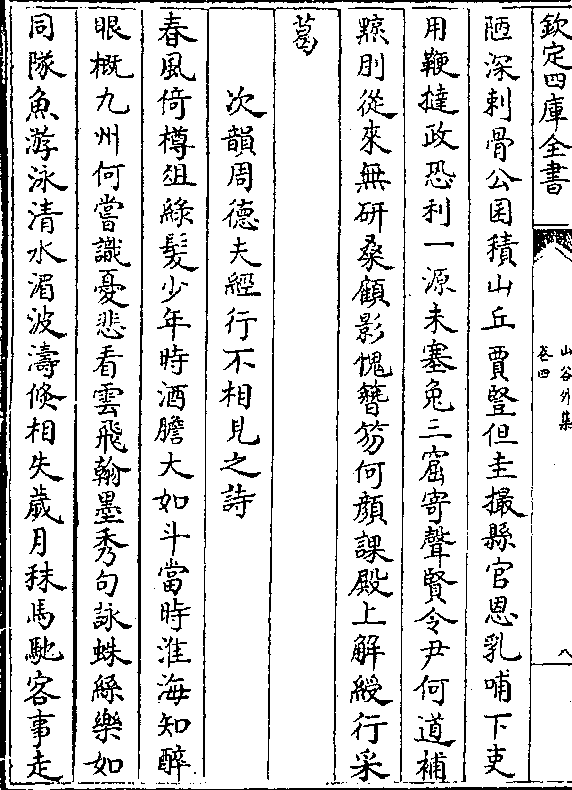 欽定四庫全書
山谷外集
卷四
八
陋深刺骨公囷積山丘賈豎但圭撮縣官恩乳哺下吏
用鞭撻政恐利一源未塞兔三窟寄聲賢令尹何道補
黥刖從來無研桑顧影愧簪笏何顏課殿上解綬行采
葛
次韻周德夫經行不相見之詩
春風倚樽俎綠髮少年時酒膽大如斗當時淮海知醉
眼概九州何嘗識憂悲看雲飛翰墨秀句詠蛛絲樂如
同隊魚游泳清水湄波濤倏相失歲月秣馬馳客事走